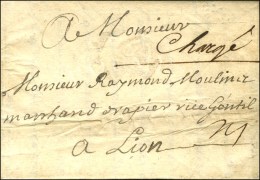 A Monsieur
Chargé
Monsieur Raymond Moulinie
marchand drapier rüe Gentil
a Lion